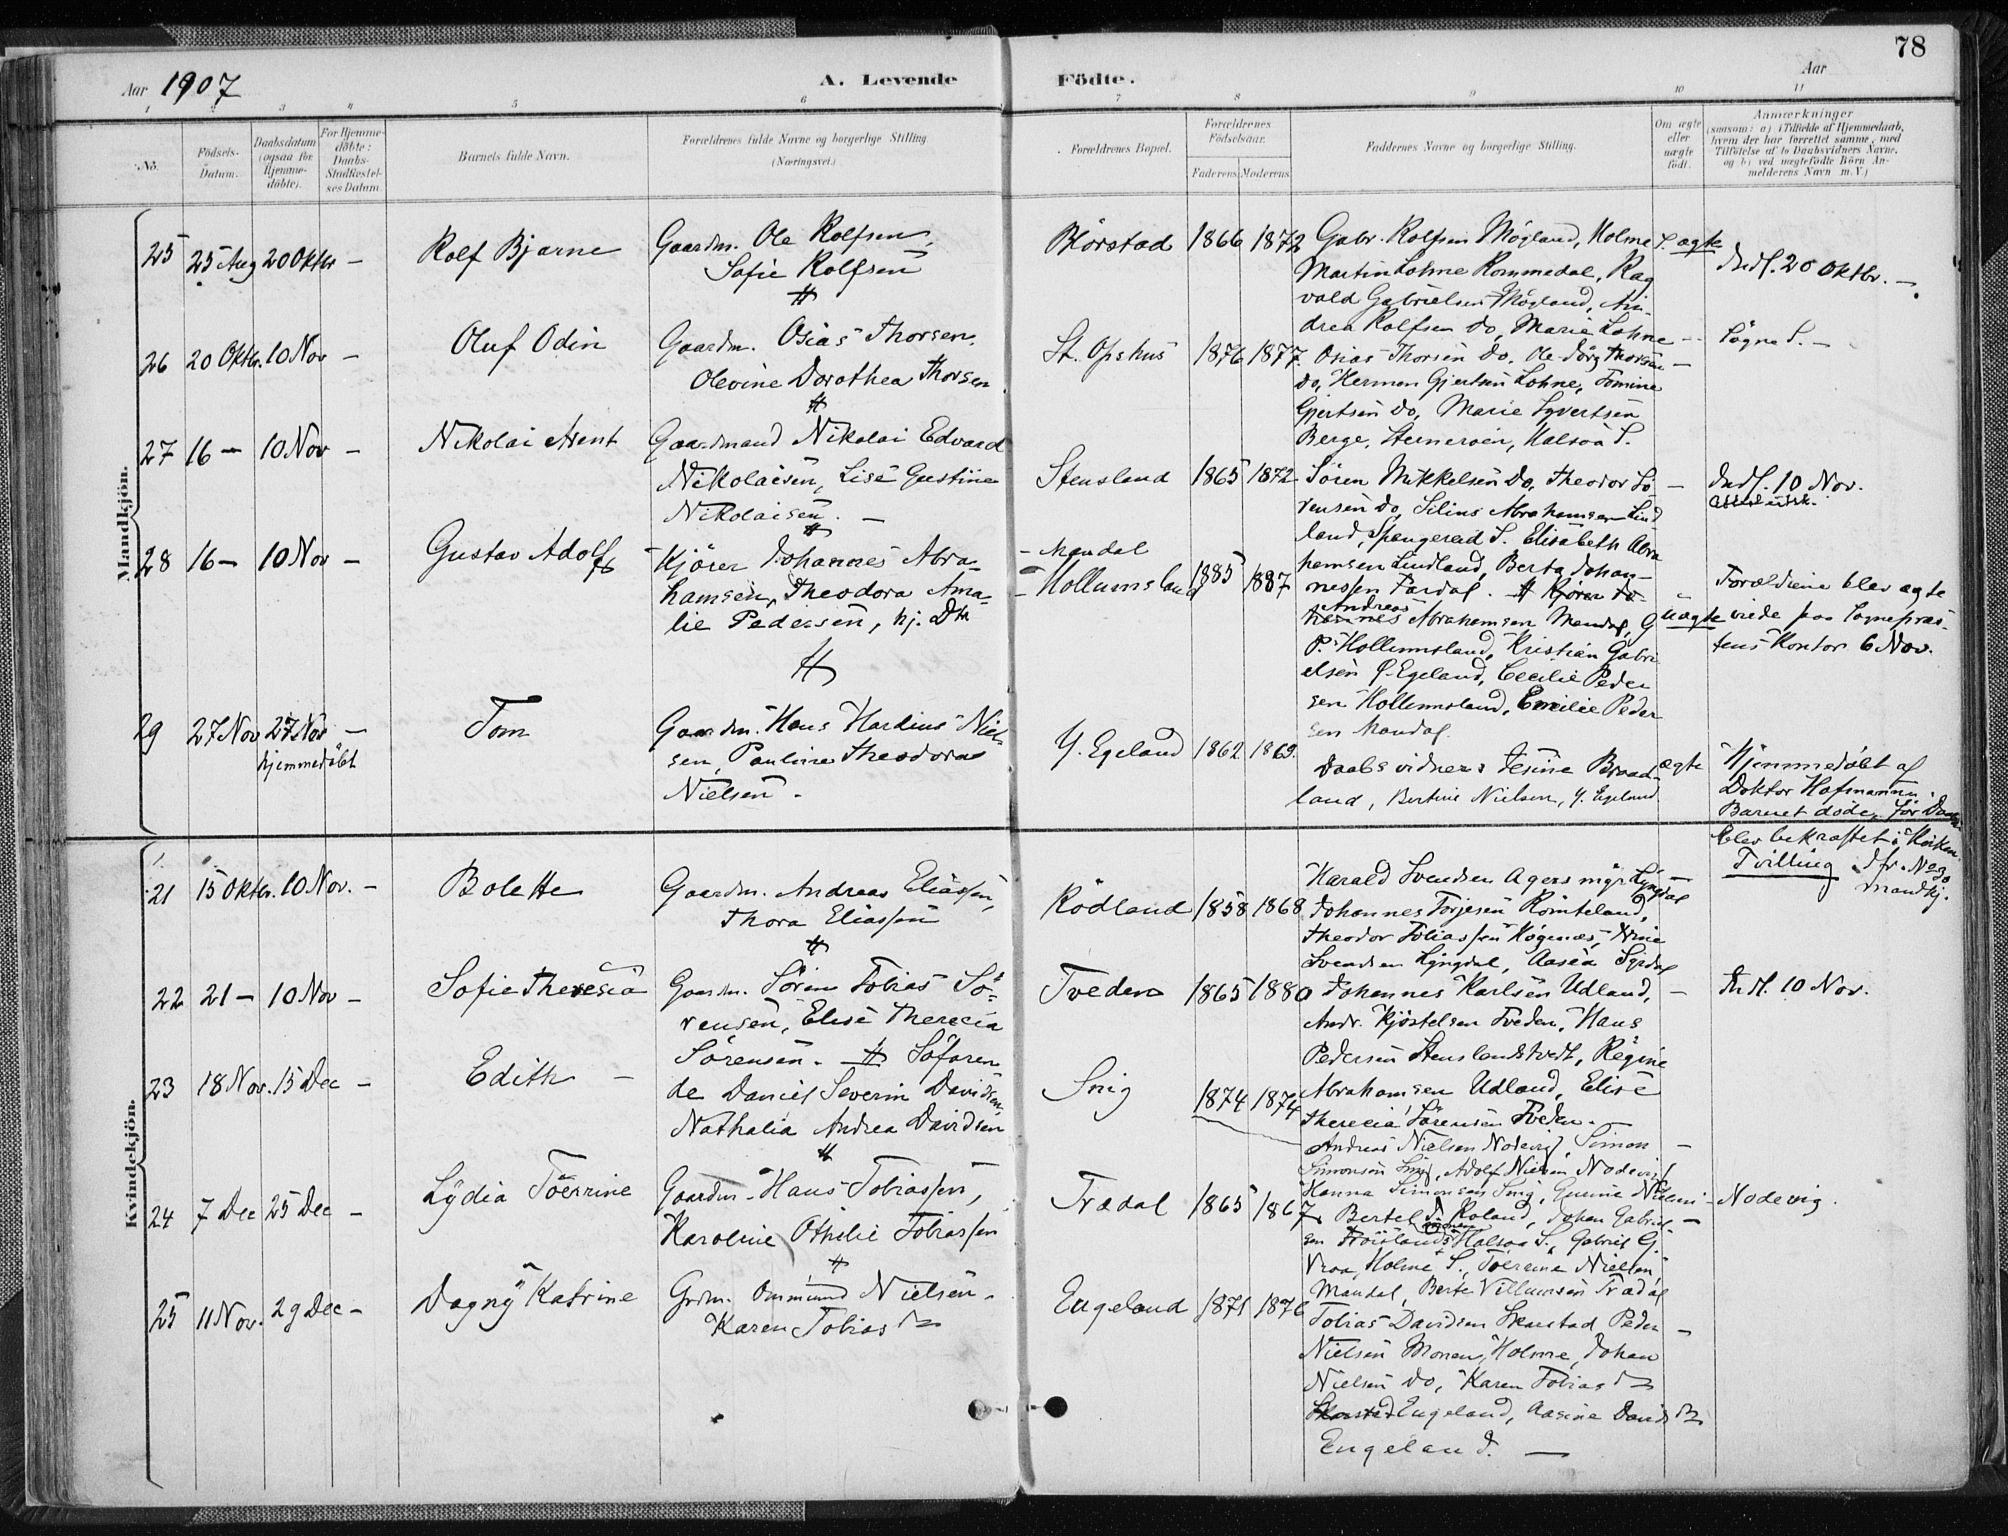 78
Aar 1907
A. Levende Födte.
Aar
1 2 3 4 5 6 7 8 9 10 11
No.
Födsels-Datum.
Daabsdatum (ogsaa for Hjemmedöbte).
For Hjemmedöbte: Daabs-Stadfæstelses Datum
Barnets fulde Navn.
Forældrenes fulde Navne og borgerlige Stilling (Næringsvei.)
Forældrenes Bopæl.
Forældrenes Födselsaar.
Faderens. Moderens.
Faddernes Navne og borgerlige Stilling.
Om ægte eller uægte födt.
Anmærkninger
(saasom: a) i Tilfælde af Hjemmedaab,
hvem der har forrettet samme, med
Tilföielse af to Daabsvidners Navne,
og b) ved uægtefödte Börn Anmelderens Navn m. V.)
Mandkjön.
25 25 Aug 20 Oktbr –
Rolf Bjarne
Gaardm. Ole Rolfsen,
Sofie Rolfsen
Blörstad 1866 1872
Gabr. Rolfsen Mögland, Holme S.
Martin Lohne Rommedal, Rag
vald Gabrielsen Mögland, An-
drea Rolfsen do, Marie Lohne
ægte
Indl. 20 Oktbr. –
26 20 Oktbr. 10 Nov –
Oluf Odin
Gaardm. Osias Thorsen.
Olevine Dorothea Thorsen
St. Opshus 1876 1877.
Osias Thorsen do. Ole Jörg Thorsen
do, Herman Gjertsen Lohne, Tomine
Gjertsen do, Marie Syvertsen
Berge, Halsaa S.
Sögne S. –
27 16 – 10 Nov –
Nikolai Arent
Gaardmand Nikolai Edvard
Nikolaisen, Lise Gustine
Nikolaisen. –
Stensland 1865 1872
Sören Mikkelsen do, Theodor Sö
rensen do, Silius Abrahamsen Lind
land, Spangereid S. Elisabeth Abra
hamsen Lindland, Berta Johan-
nessen Fardal.
Indl. 10 Nov.
28 16 – 10 Nov –
Gustav Adolf
Kjörer Johannes Abra-
hamsen, Theodora Ama-
lie Pedersen, hj. Dtr
– Mandal
– Hollumsland 1885 1887
Kjörer
Andreas Abrahamsen Mandal, G
P. Hollumsland, Kristian Gabri
elsen Y. Egeland, Cecilie Peder
sen Hollumsland, Emilie Peder
sen Mandal.
uægte
Forældrene blev ægte
viede paa Sognepræs-
tens Kontor 6 Nov.
29 27 Nov 27 Nov –
hjemmedöbt
Tom
Gaardm. Hans Hardius Niel-
sen, Pauline Theodora
Nielsen. –
Y. Egeland 1862 1869.
Daabsvidner: Tesine Braad-
land, Bertine Nielsen, Y. Egeland
ægte
Hjemmedöbt af
Doktor Hofmann
Barnet döde för Daaben
blev bekræftet i Kirken.
Kvindekjön.
21 15 Oktbr. 10 Nov. –
Bolette
Gaardm. Andreas Eliassen,
Thora Eliassen
Rödland 1858 1868
Harald Svendsen Agersmyr Lyngdal
Johannes Torjesen Römteland,
Theodor Tobiassen Högenæs, Nine
Svendsen Lyngdal, Aasea Syrdal
Tvilling Jfr. No 30
Mandkj.
22 21 – 10 Nov –
Sofie Theresia
Gaardm. Sören Tobias Sö-
rensen, Elise Therecia
Sörensen. –
Tveden 1865 1880
Johannes Karlsen Udland,
Andr. Kjöstelsen Tveden, Hans
Pedersen Stenslandstvedt, Regine
Abrahamsen Udland, Elise
Therecia Sörensen Tveden. –
Indl. 10 Nov.
23 18 Nov. 15 Dec –
Edith –
Söfaren-
de Daniel Severin Davidsen,
Nathalia Andrea Davidsen
Snig 1874 1874
Andreas Nielsen Nodevig, Simon
Simonsen Snig, Adolf Nielsen Nodevig,
Hanna Simonsen Snig, Gunine Nielsen – Nodevig.
24 7 Dec 25 Dec –
Lydia Toerrine
Gaardm. Hans Tobiassen,
Karoline Othilie Tobiassen
Trædal 1865 1867
Bertel J. Roland, Johan Gabriel-
sen Halsaa S., Gabriel G.
Vraa, Holme S., Toerrine Nielsen
Mandal, Berte Villumsen Trædal
25 11 Nov. 29 Dec –
Dagny Katrine
Grdm. Ommund Nielsen.
Karen Tobiasdtr
Engeland 1871 1876
Tobias Davidsen Skarstad Peder
Nielsen Monen, Holme, Johan
Nielsen do, Karen Tobiasdtr
Engeland, Aasine Davidsdtr
Engeland. –